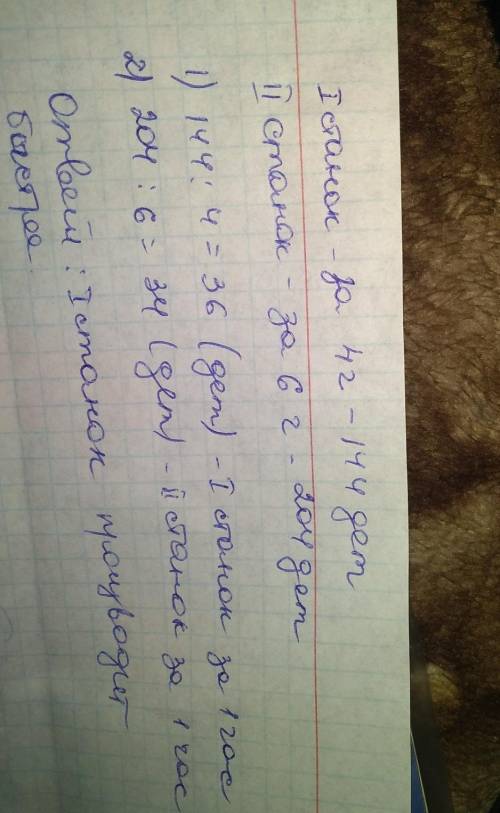 I станок - за 4г - 144 дет
II станок - за 6 г - 204 дет
1) 144 : 4 = 36 (дет) - I станок за 1 час
2) 204 : 6 = 34 (дет) - II станок за 1 час
Ответ : I станок производит
быстрее.